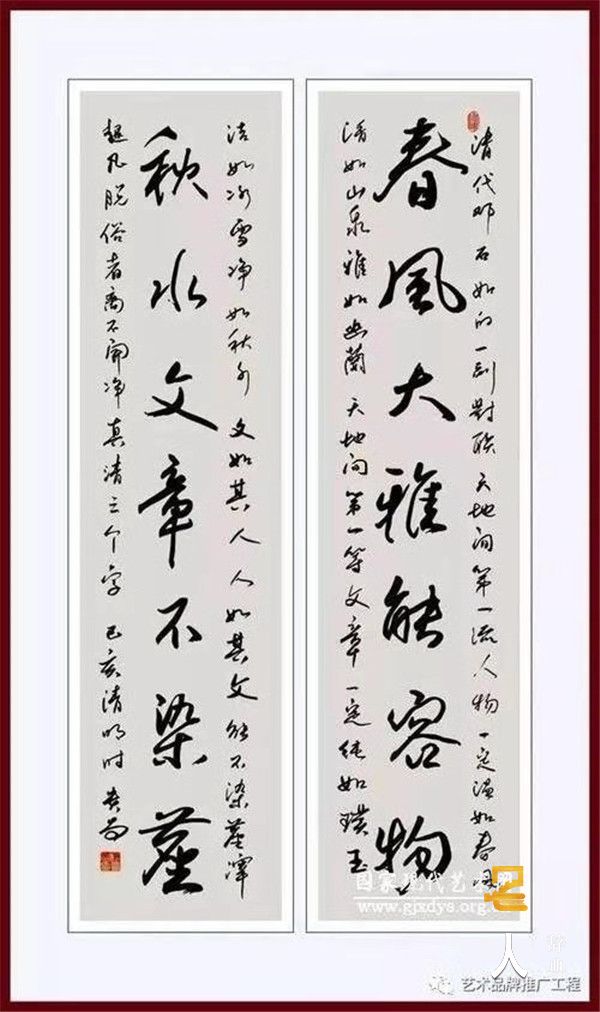 清代邓石如的一副對联天地间第一流人物一定温如春风
春風大雅能容物
清如山泉雅如幽蘭天地间第一等文章一定纯如璞玉
洁如冰雪净如秋水文如其人人如其文能不染塵滓
秋水文章不染塵
超凡脱俗者离不開净真清三个字己亥清明时
国家现代艺术网
www.gjxdys.org.cn
艺术品牌推广工程